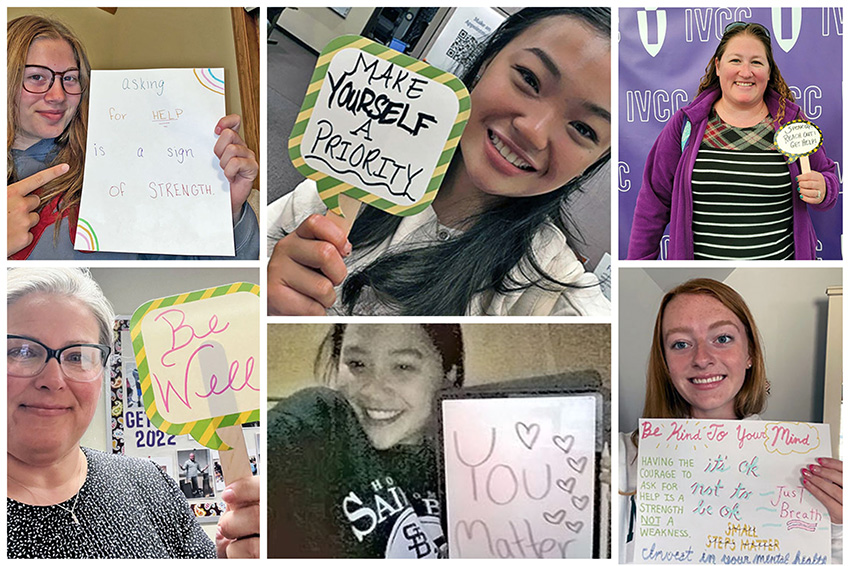 asking
for HELP
is a sign
of STRENGTH.
MAKE
YOURSELF
A
PRIORITY
IVCC
IVCC
IVCC
SHOW UP
REACH OUT
GET HELP!
Be
Well
GET
2022
YOU
Matter
SAIL
SB
Be Kind To Your Mind
HAVING THE
COURAGE TO
ASK FOR
HELP IS A
STRENGTH
NOT A
WEAKNESS.
it's ok
not to
be ok
Just
Breath
SMALL
STEPS MATTER
Invest in your mental health